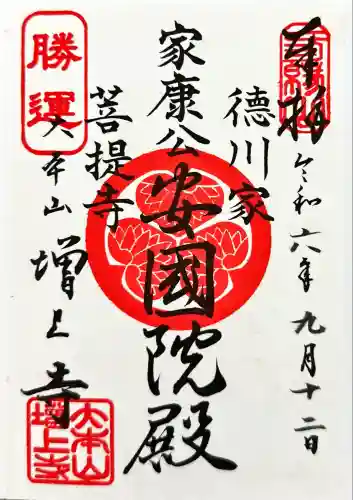 奉拝
令和六年九月十二日
德川家
家康公
安國院殿
菩提寺
勝運
大本山
増上寺
大本山
増上寺